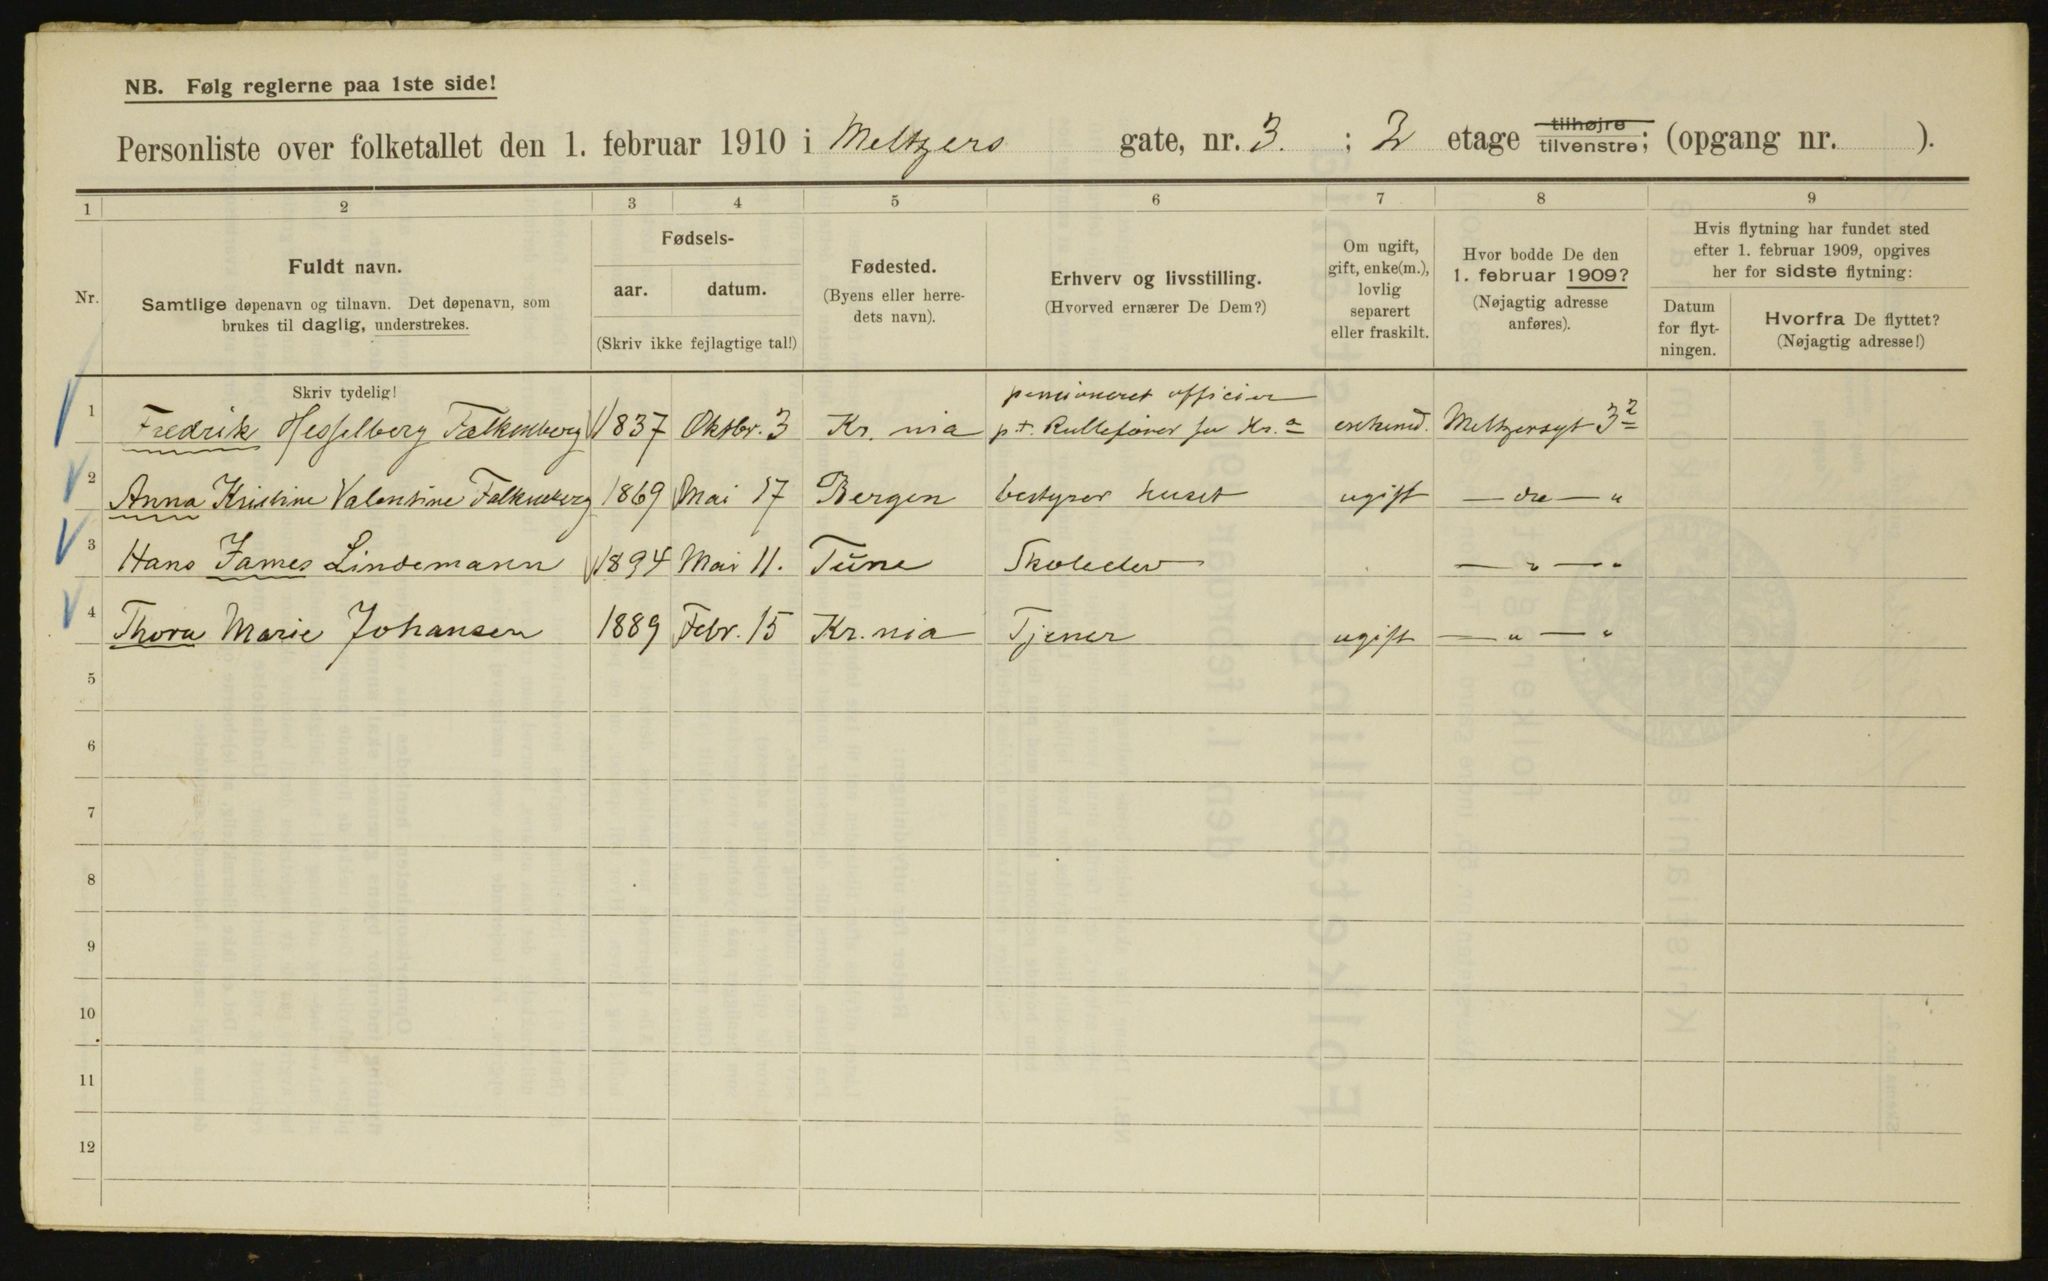 NB. Følg reglerne paa 1ste side!
Personliste over folketallet den 1. februar 1910 i Meltzers gate, nr. 3. ; 2 etage tilhøjre tilvenstre; (opgang nr. ).
1 2 3 4 5 6 7 8 9
Nr.
Fuldt navn.
Samtlige døpenavn og tilnavn. Det døpenavn, som
brukes til daglig, understrekes.
Fødsels-
aar. datum.
(Skriv ikke fejlagtige tal!)
Fødested.
(Byens eller herre-
dets navn).
Erhverv og livsstilling.
(Hvorved ernærer De Dem?)
Om ugift,
gift, enke(m.),
lovlig
separert
eller fraskilt.
Hvor bodde De den
1. februar 1909?
(Nøjagtig adresse
anføres).
Hvis flytning har fundet sted
efter 1. februar 1909, opgives
her for sidste flytning:
Datum
for flyt-
ningen.
Hvorfra De flyttet?
(Nøjagtig adresse!)
Skriv tydelig!
pensioneret officier
1 Fredrik Hesselberg Falkenberg 1837 Oktbr. 3 Kr. nia p.t. Rullefører for Kr.a enkemd. Meltzersgt 3 2
2 Anna Kristine Valentine Falkenberg 1869 Mai 17 Bergen bestyrer huset ugift — do — "
3 Hans James Lindemann 1894 Mai 11. Tune Skoleelev — " — "
4 Thora Marie Johansen 1889 Febr. 15 Kr.nia Tjener ugift — " — "
5
6
7
8
9
10
11
12